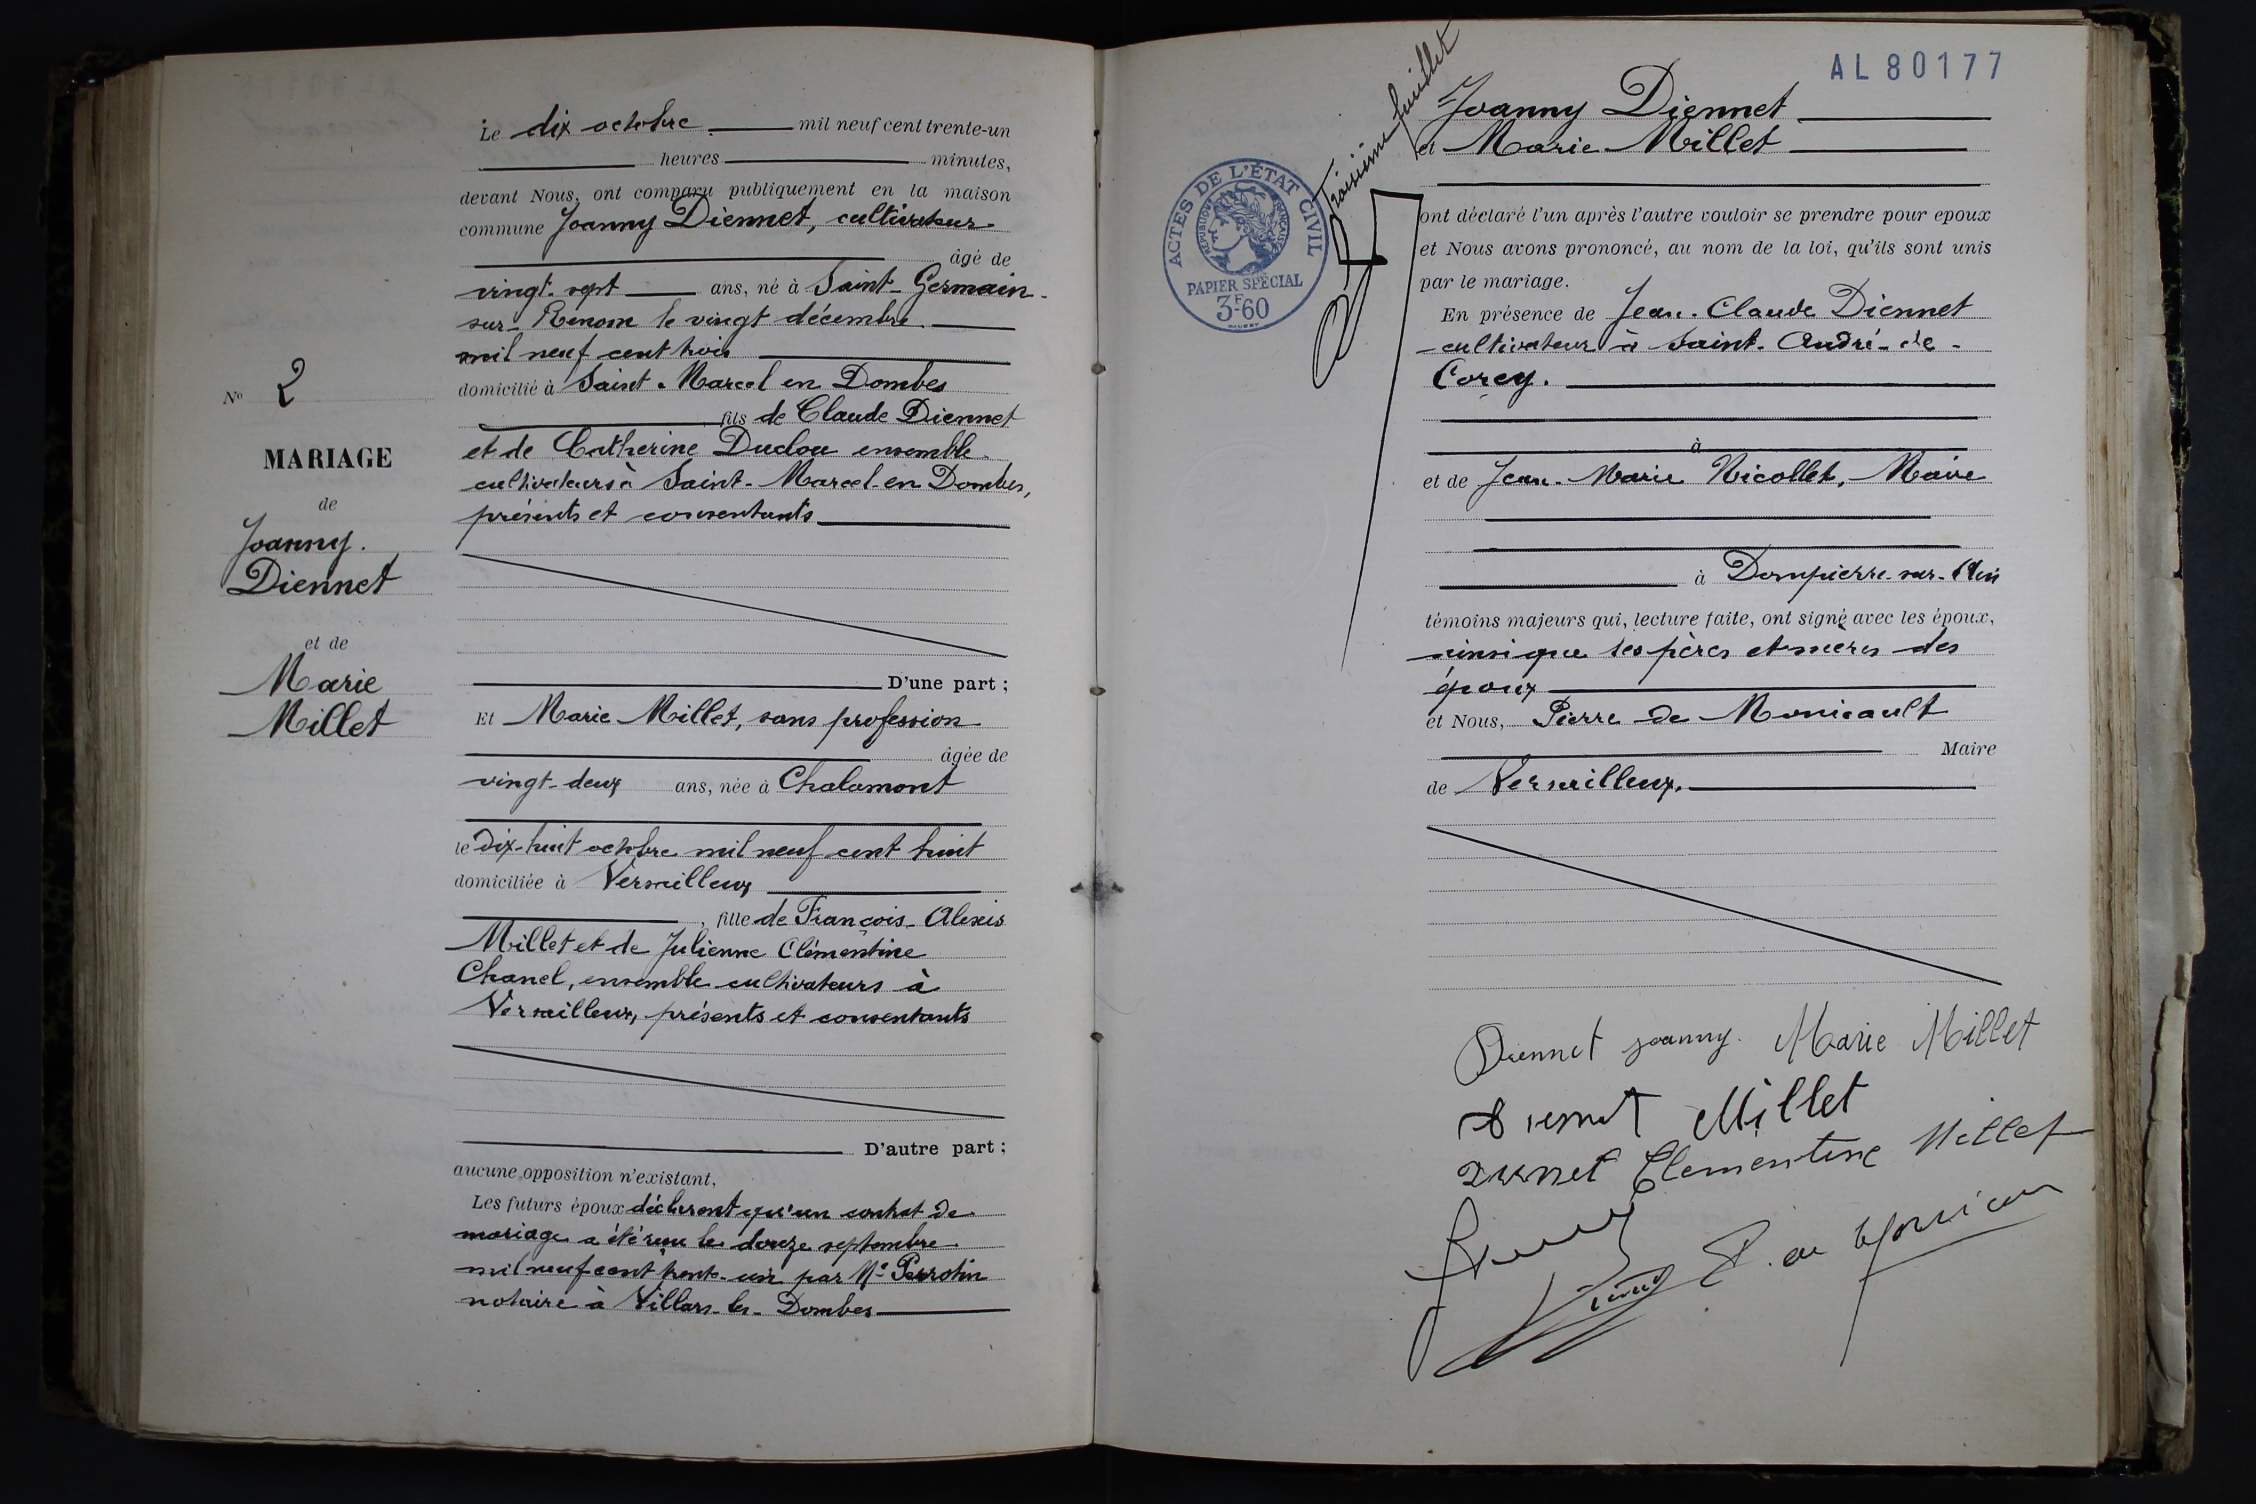 Le dix octobre mil neuf cent trente-un
heures minutes,
devant Nous, ont comparu publiquement en la maison
commune Joanny Diennet, cultivateur
âgé de
vingt-sept ans, né à Saint-Germain-
sur-Renom le vingt décembre
mil neuf cent trois
domicilié à Saint-Marcel en Dombes
fils de Claude Diennet
et de Catherine Duclou ensemble
cultivateurs à Saint-Marcel-en Dombes,
présents et consentants
N° 2
MARIAGE
de
Joanny
Diennet
et de
Marie
Millet
D'une part ;
Et Marie Millet, sans profession
âgée de
vingt-deux ans, née à Chalamont
le dix-huit octobre mil neuf cent huit
domiciliée à Versailleux
, fille de François-Alexis
Millet et de Julienne Clémentine
Chanel, ensemble cultivateurs à
Versailleux, présents et consentants
D'autre part ;
aucune opposition n'existant,
Les futurs époux déclarent qu'un contrat de
mariage a été reçu le douze septembre
mil neuf cent trente-un par Me Perrotin
notaire à Villars-les-Dombes
AL 80177
Troisième feuillet
ACTES DE L'ÉTAT CIVIL
RÉPUBLIQUE FRANÇAISE
PAPIER SPÉCIAL
3F60
Joanny Diennet
et Marie Millet
ont déclaré l'un après l'autre vouloir se prendre pour époux
et Nous avons prononcé, au nom de la loi, qu'ils sont unis
par le mariage.
En présence de Jean-Claude Diennet
cultivateur à Saint-André-de-
Corcy.
à
et de Jean-Marie Nicollet, Maire
à Dompierre-sur-Ain
témoins majeurs qui, lecture faite, ont signé avec les époux,
ainsi que les pères et mères des
époux
et Nous, Pierre de Monicault
Maire
de Versailleux.
Diennet Joanny. Marie Millet
Diennet Millet
Diennet Clementine Millet
P. de Monicau